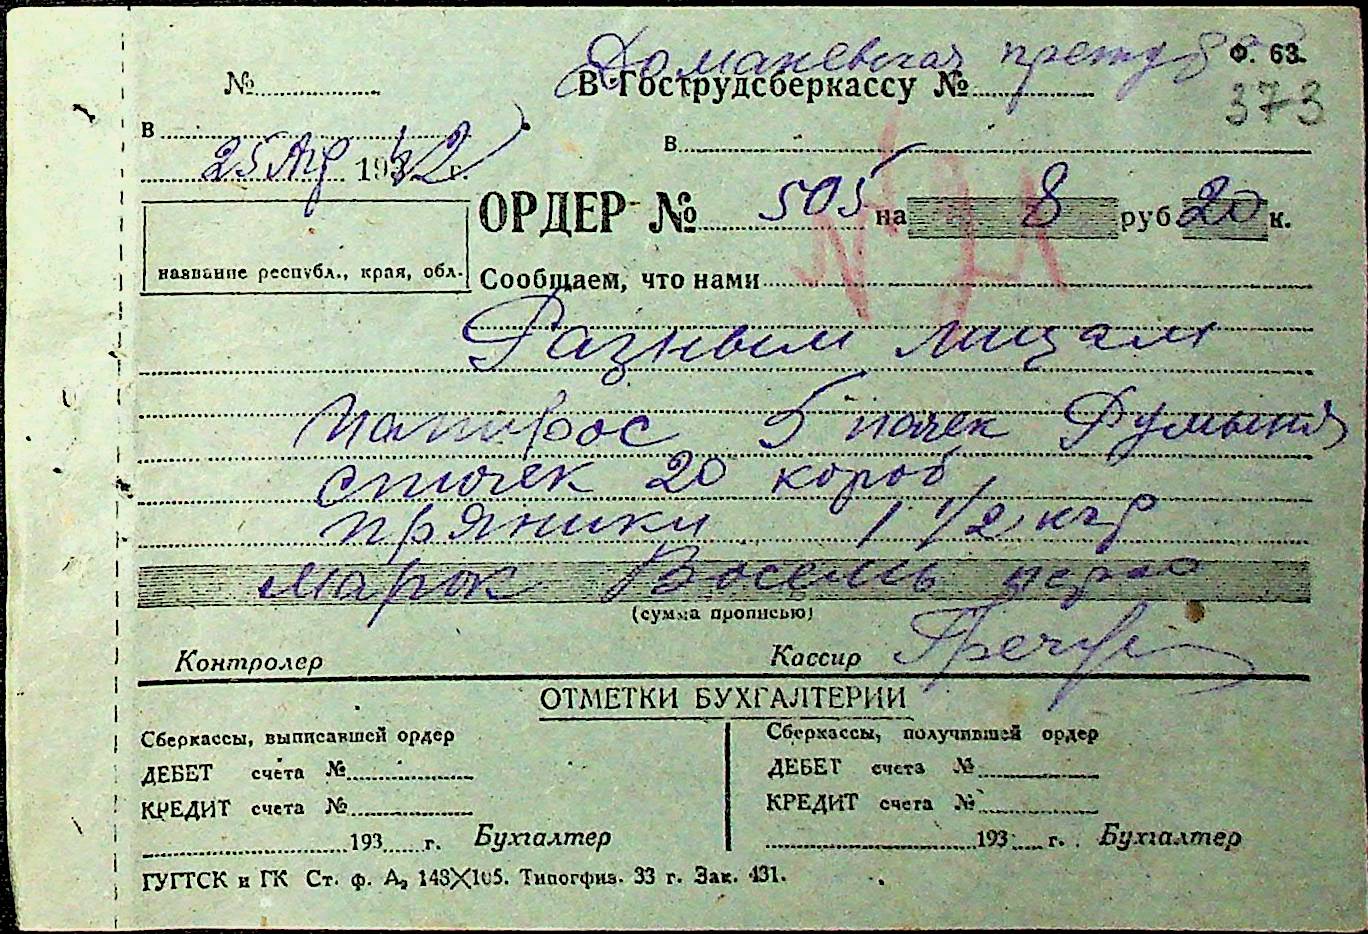 Доманевская претур
Ф. 63.
№
В Гострудсберкассу №
373
в
в
25 Апр 1942 г.
ОРДЕР № 505 на 8 руб 20 к.
название республ., края, обл.
Сообщаем, что нами
Разным лицам
Папирос 5 пачек Румыня
спичек 20 короб
пряники 1 1/2 кгр
марок Восемь
(сумма прописью)
Контролер
Кассир
ОТМЕТКИ БУХГАЛТЕРИИ
Сберкассы, выписавшей ордер
Сберкассы, получившей ордер
ДЕБЕТ счета №
ДЕБЕТ счета №
КРЕДИТ счета №
КРЕДИТ счета №
193 г. Бухгалтер
193 г. Бухгалтер
ГУГТСК и ГК Ст. ф. А₂ 148X105. Типогфиз. 33 г. Зак. 431.